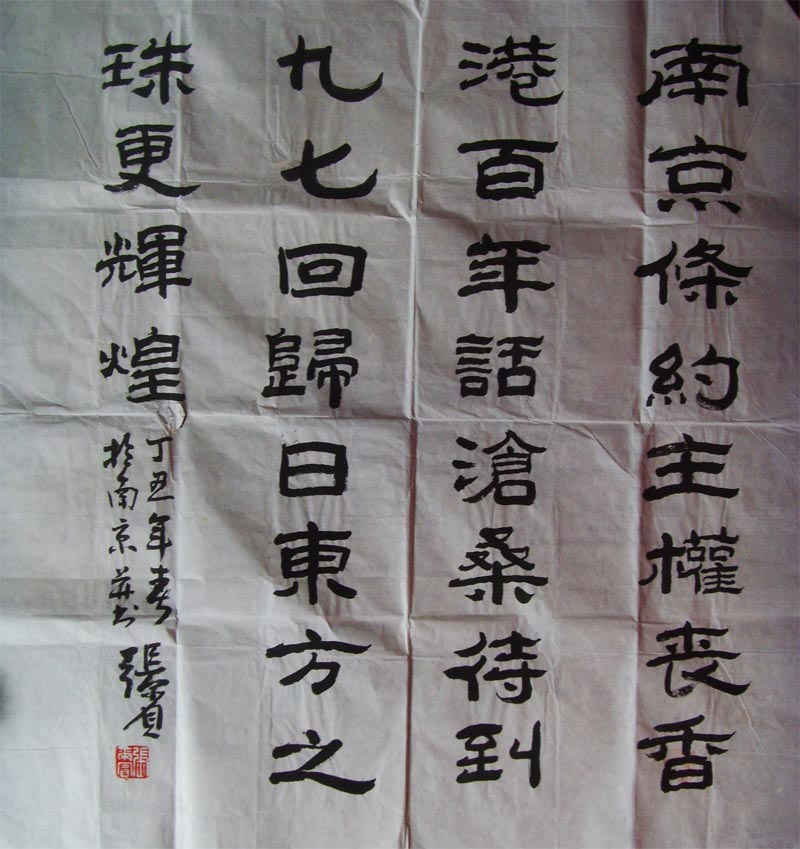 南京條約主權喪香
港百年話滄桑待到
九七回歸日東方之
珠更輝煌
丁丑年春
於南京并书
張貞